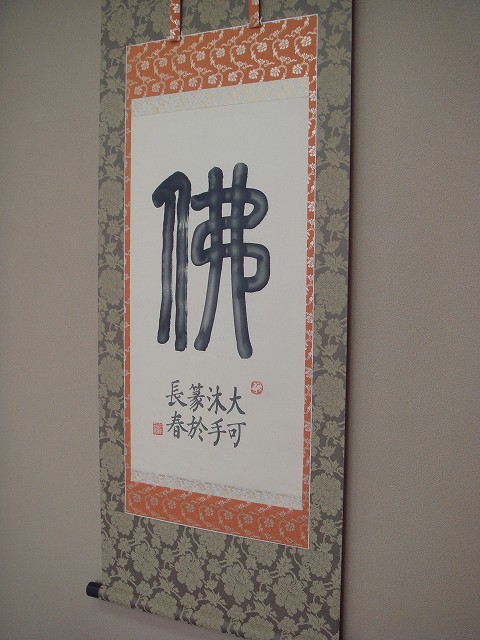 佛
大可
沐手
篆於
長春